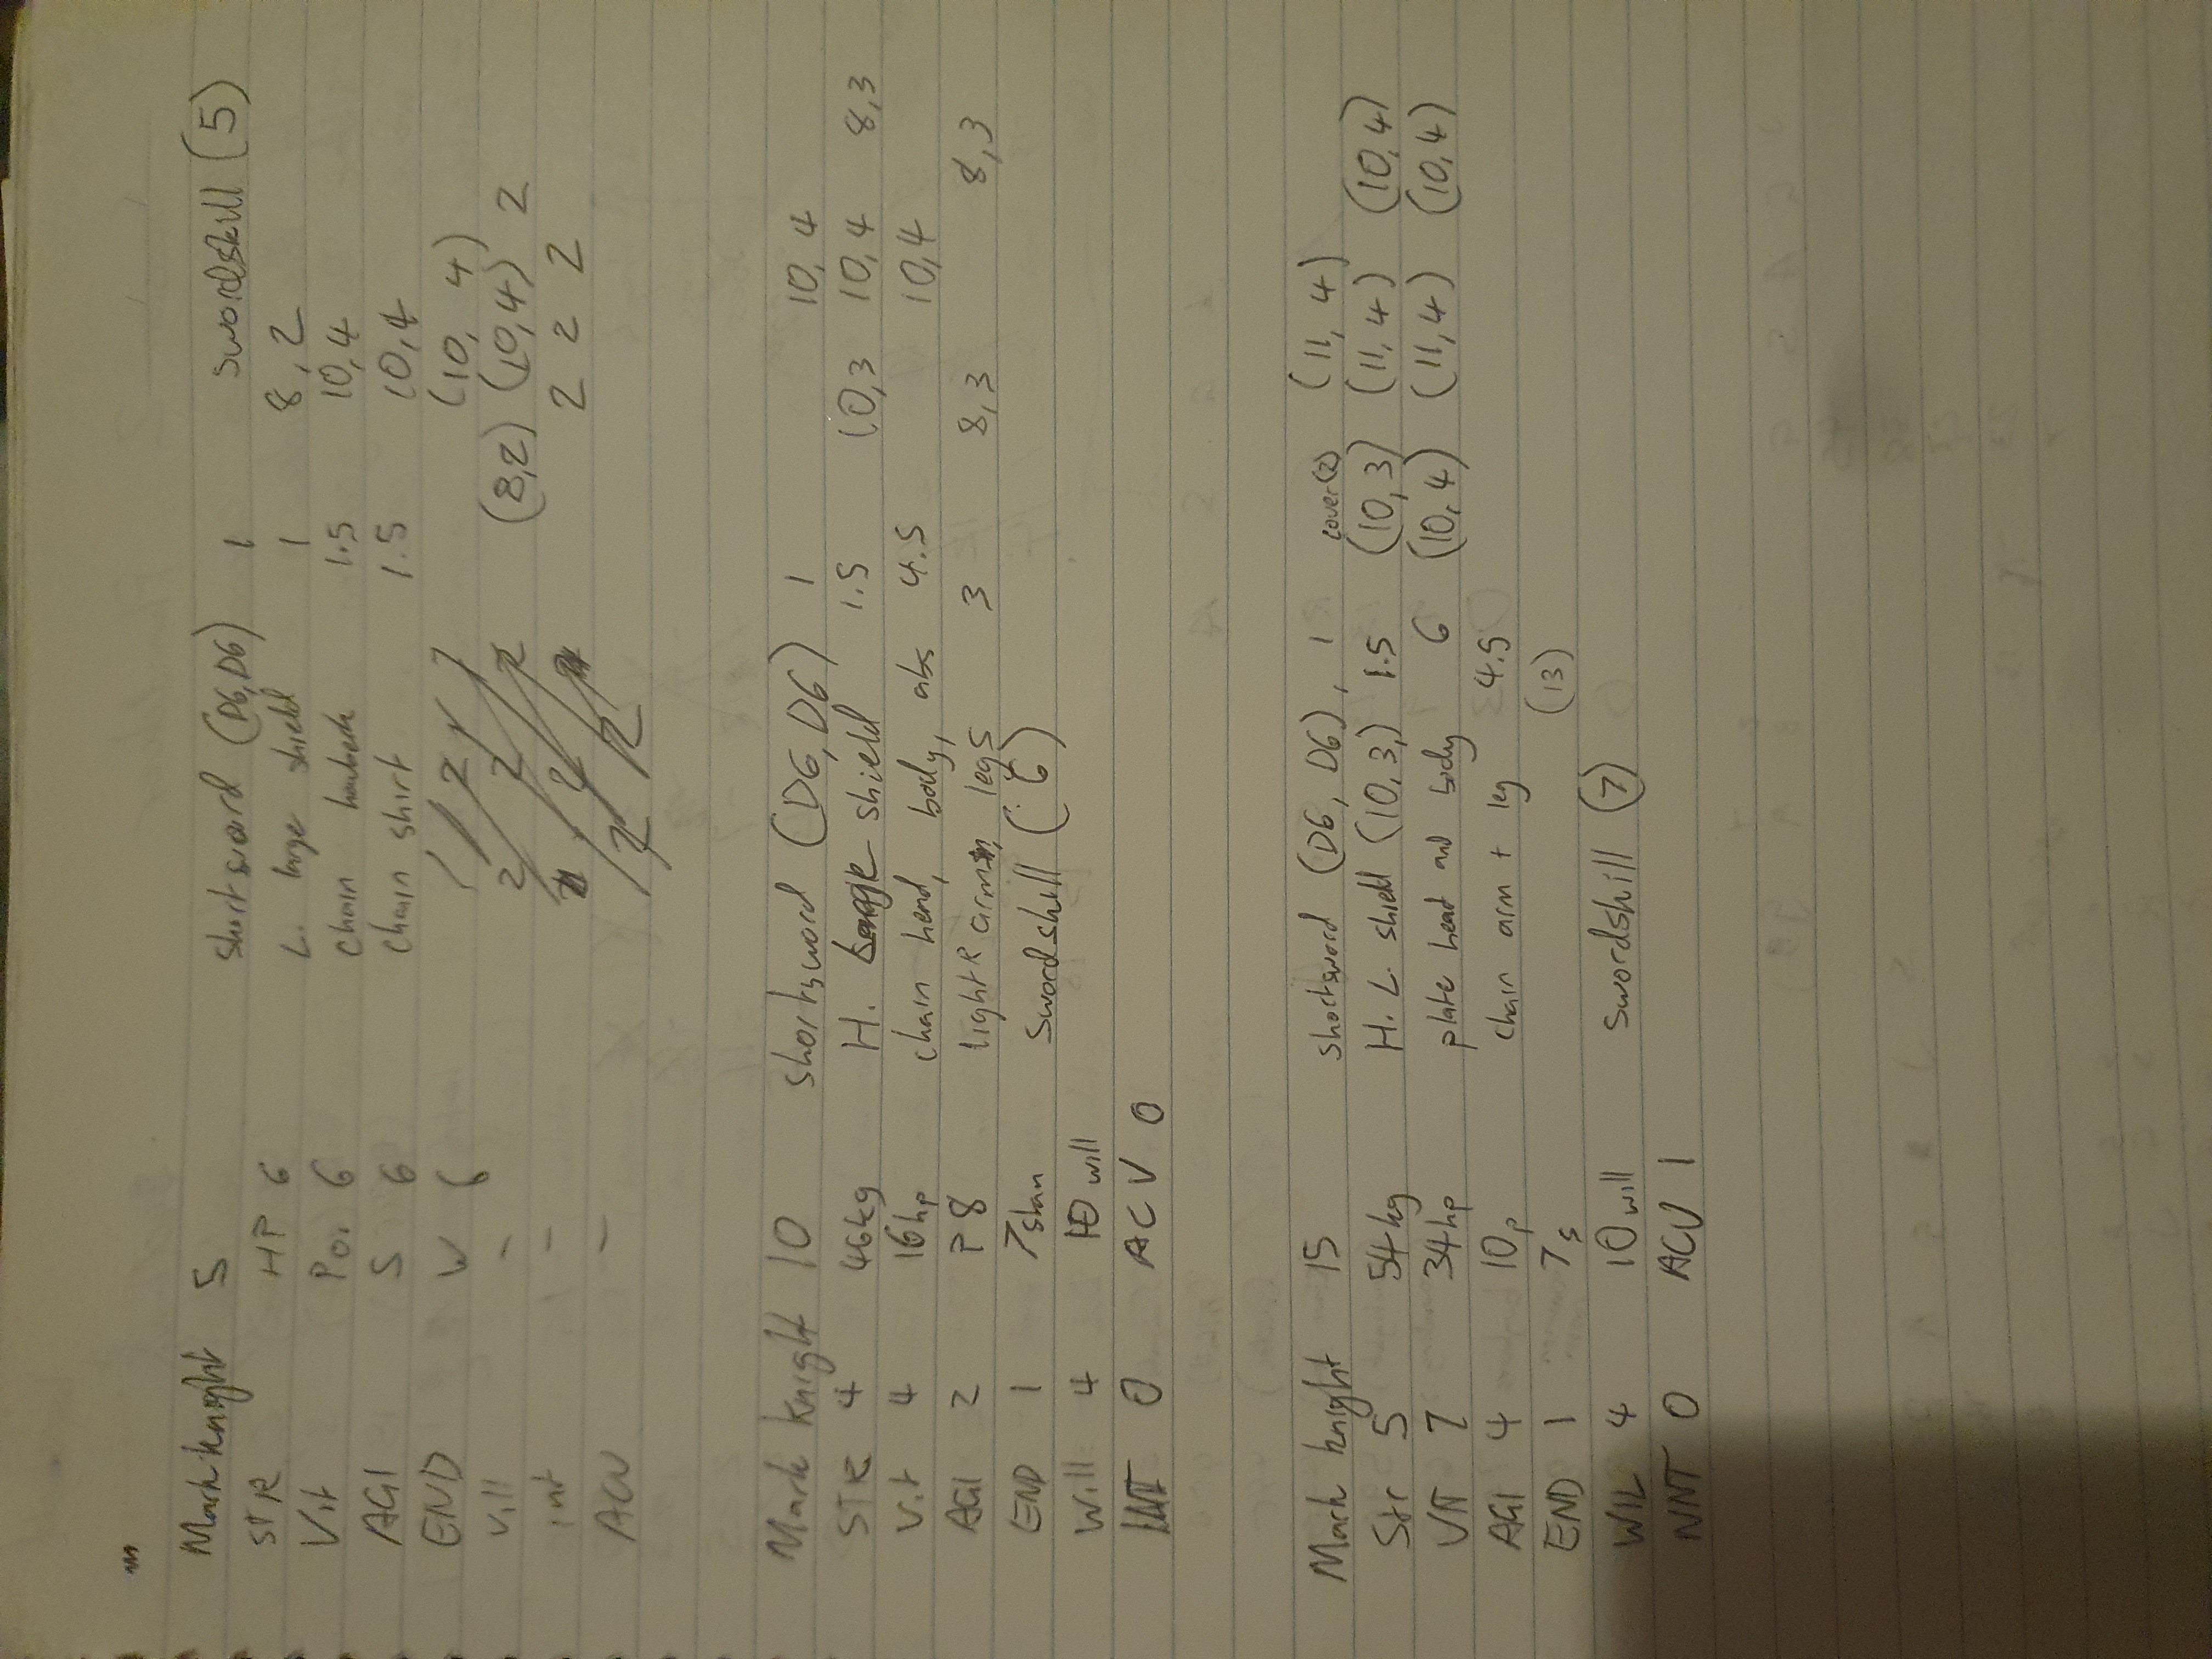 Mark knight 5 shortsword (D6,D6) 1 swordskill (5)
STR HP 6 L. large shield 1 8,2
Vit Poi 6 chain hauberk 1.5 10,4
AGI S 6 chain shirt 1.5 10,4
END W 6 (10, 4)
will - (8,2) (10,4) 2
int - 2 2 2
ACU -
Mark knight 10 shortsword (D6,D6) 1 10,4
STR 4 46kg H. shield 1.5 10,3 10,4 8,3
Vit 4 16hp chain head, body, abs 4.5 10,4
AGI 2 P 8 light R arm, legs 3 8,3 8,3
END 1 7stan Swordskill (6)
Will 4 10 will
INT 0 ACV 0
Mark knight 15 shortsword (D6, D6), 1 cover(2) (11, 4)
Str 5 54kg H. L. shield (10,3,) 1.5 (10,3) (11,4) (10,4)
VIT 7 34hp plate head and body 6 (10,4) (11,4) (10,4)
AGI 4 10p chain arm + leg 4.5
END 1 7s (13)
WIL 4 10will Swordskill (7)
INT 0 ACU 1